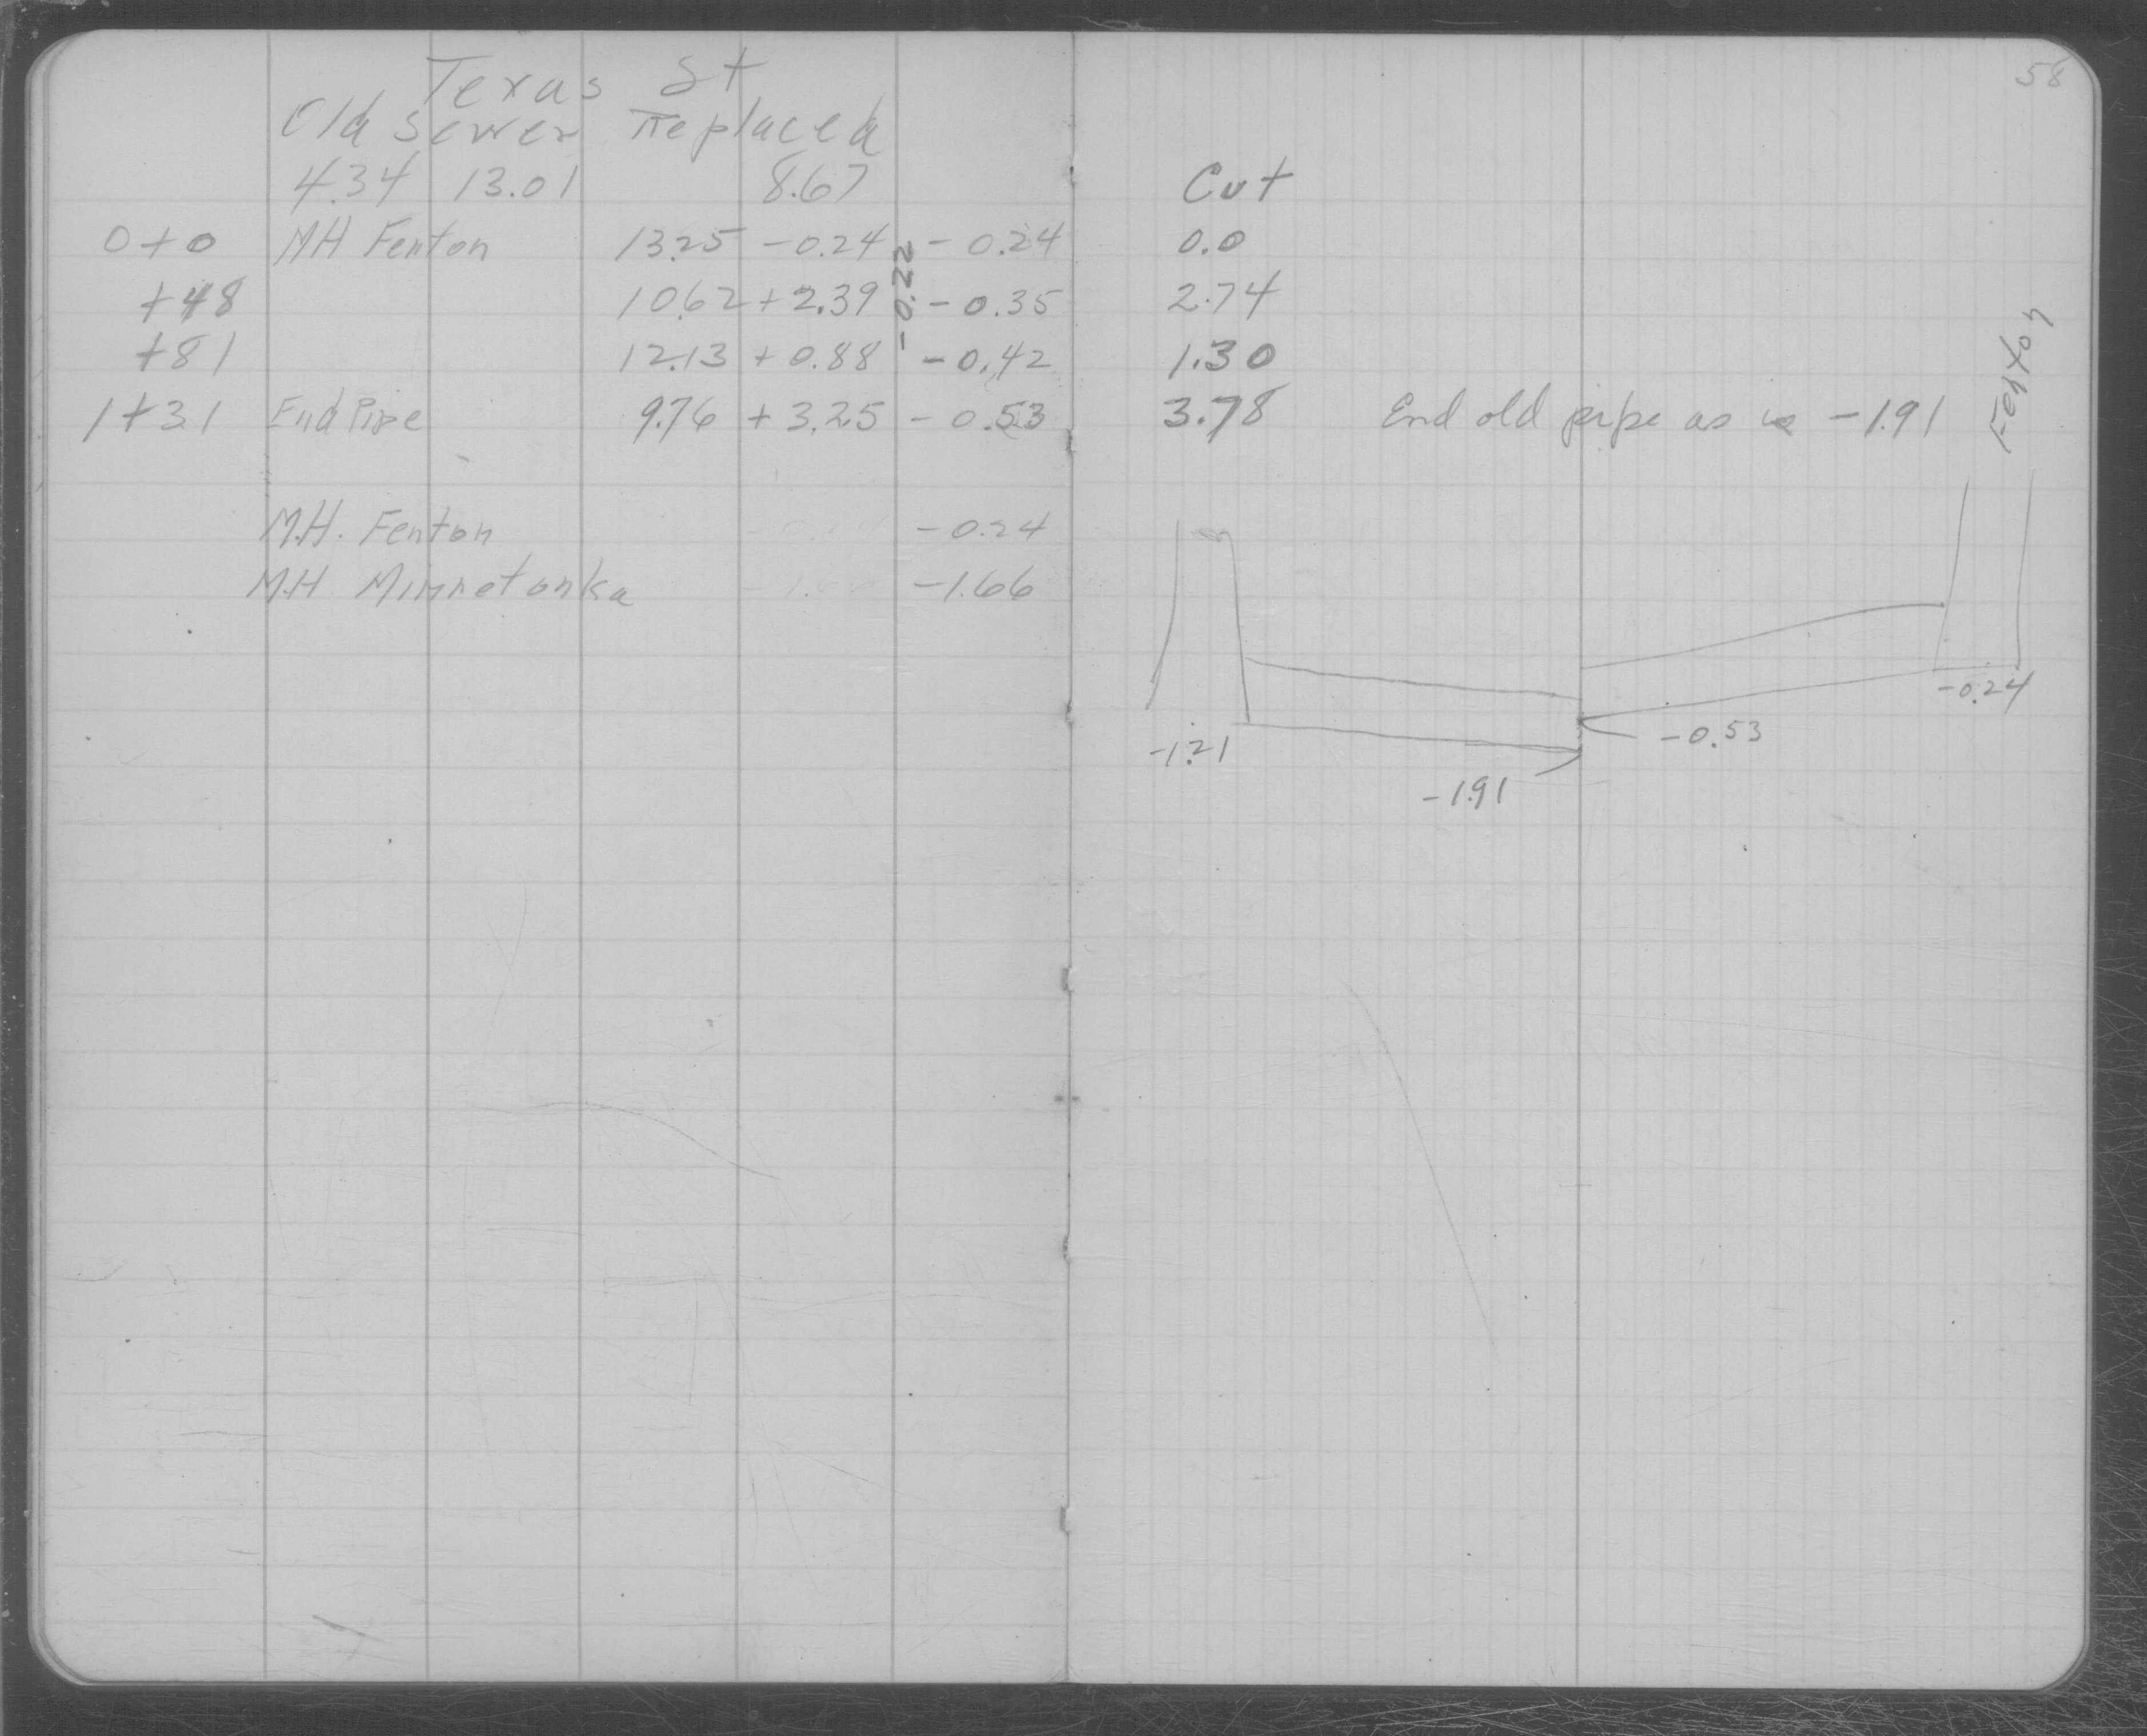 58
Texas St
Old Sewer Replaced
4.34 13.01 8.67 Cut
0+0 MH Fenton 13.25 -0.24 -0.24 0.0
-0.22
+48 10.62 +2.39 -0.35 2.74
+81 12.13 +0.88 -0.42 1.30
1+31 End Pipe 9.76 +3.25 -0.53 3.78 End old pipe as is -1.91
Fenton
M.H. Fenton -0.24
M.H Minnetonka -1.66
-0.24
-0.53
-1.21
-1.91